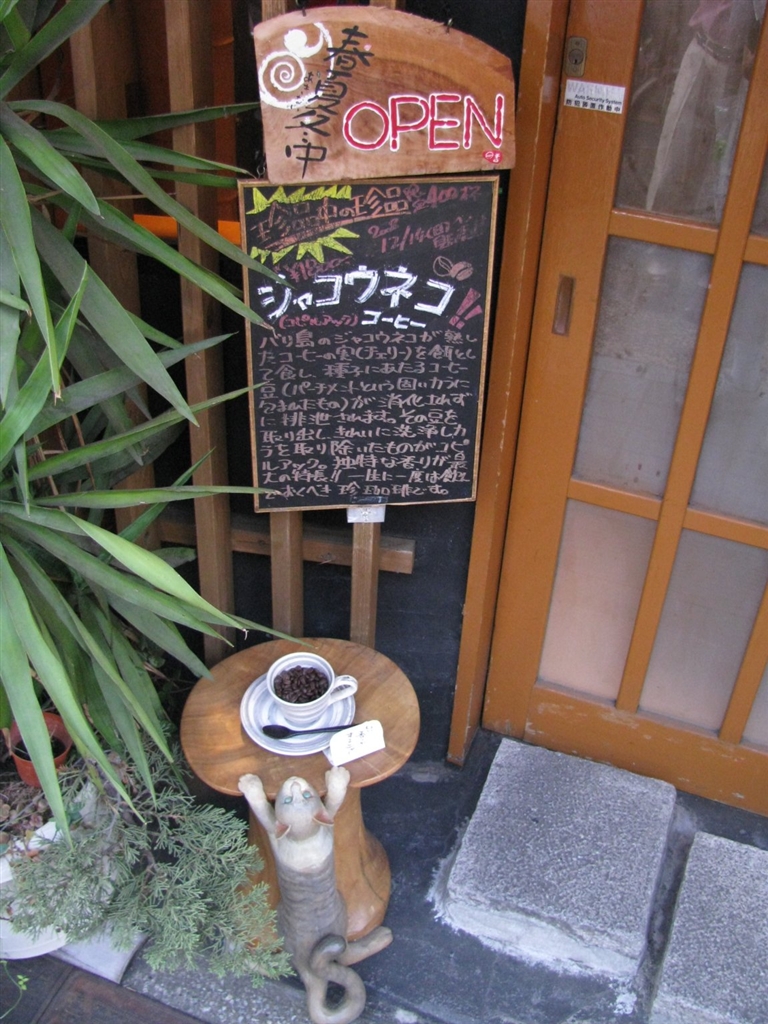 春夏冬中
OPEN
WARNING
Auto Security System
珍品中の珍品
12/14(日)
ジャコウネコ!!
(コピルアック) コーヒー
バリ島のジャコウネコが熟し
たコーヒーの実(チェリー)を餌とし
て食し、種子にあたるコーヒー
豆(パーチメントという固いカラに
包まれたもの)が消化されず
に排泄されます。その豆を
取り出し、きれいに洗浄しカ
ラを取り除いたものがコピ
ルアック。独特な香りが最
大の特長!!一生に一度は飲ん
でおくべき珍珈琲です。